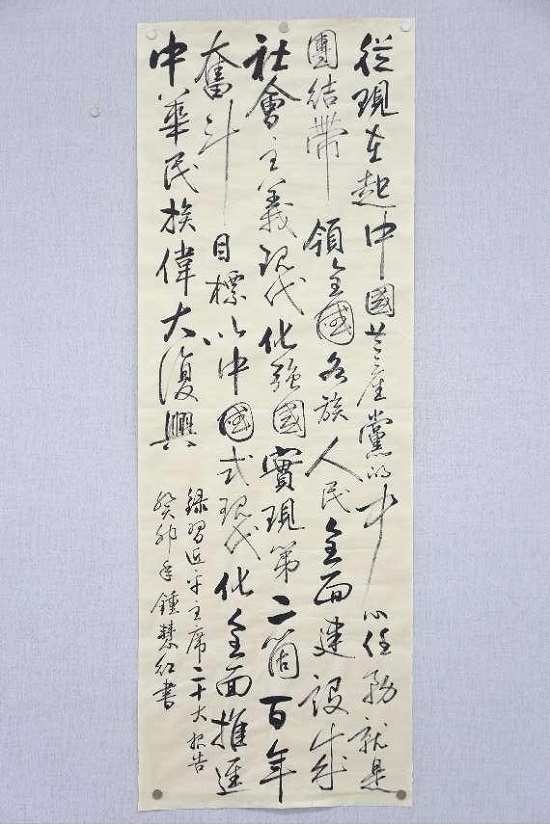 從現在起中國共產黨的中心任務就是
團結帶領全國各族人民全面建設成
社會主義現代化強國實現第二箇百年
奮斗目標以中國式現代化全面推進
中華民族偉大復興
錄習近平主席二十大報告
癸卯年鍾慧紅書